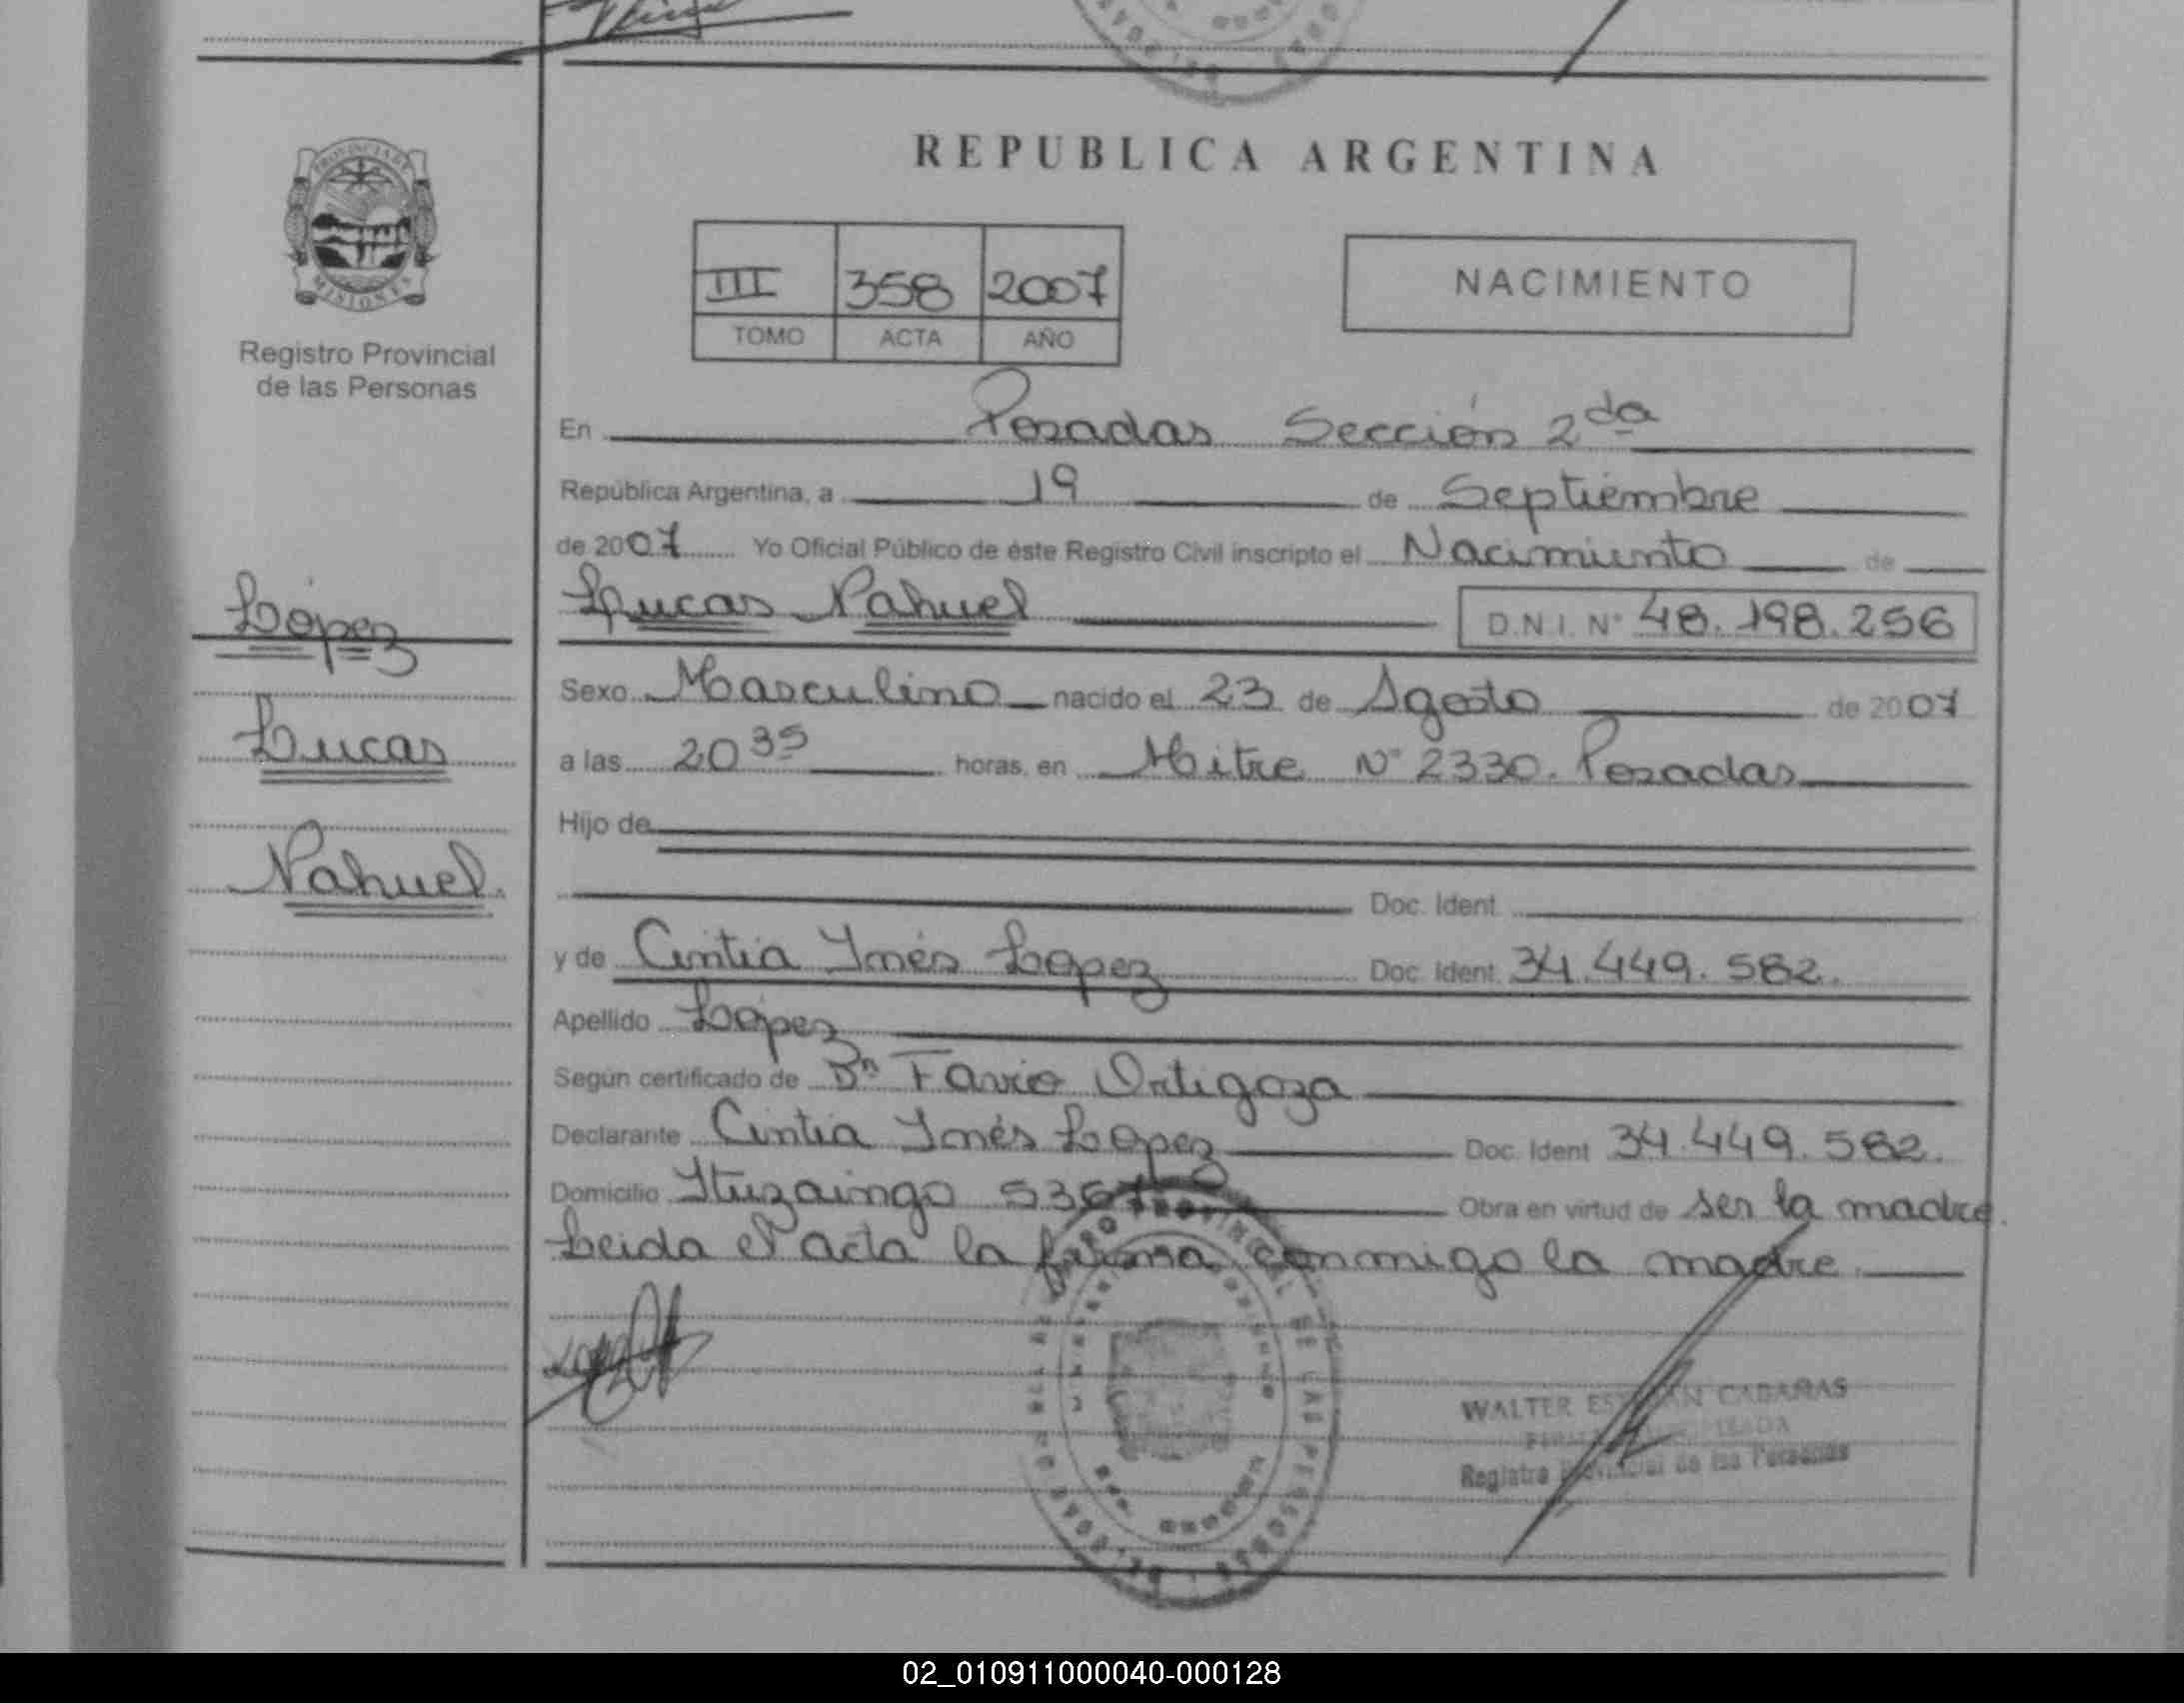 PROVINCIA DE
MISIONES
Registro Provincial
de las Personas
López
Lucas
Nahuel
REPUBLICA ARGENTINA
III 358 2007
TOMO ACTA AÑO
NACIMIENTO
En Posadas Sección 2da
República Argentina, a 19 de Septiembre
de 2007 Yo Oficial Público de éste Registro Civil inscripto el Nacimiento de
Lucas Nahuel D.N.I. N° 48.198.256
Sexo Masculino nacido el 23 de Agosto de 2007
a las 20 35 horas, en Mitre N° 2330. Posadas
Hijo de
Doc. Ident.
y de Cintia Inés López Doc. Ident. 34.449.582.
Apellido López
Según certificado de Dr Favio Ortigoza
Declarante Cintia Inés López Doc. Ident 34.449.582.
Domicilio Ituzaingo Obra en virtud de ser la madre.
Leida el acta la firma conmigo la madre
WALTER CABAÑAS
Registro Provincial de las Personas
02_010911000040-000128